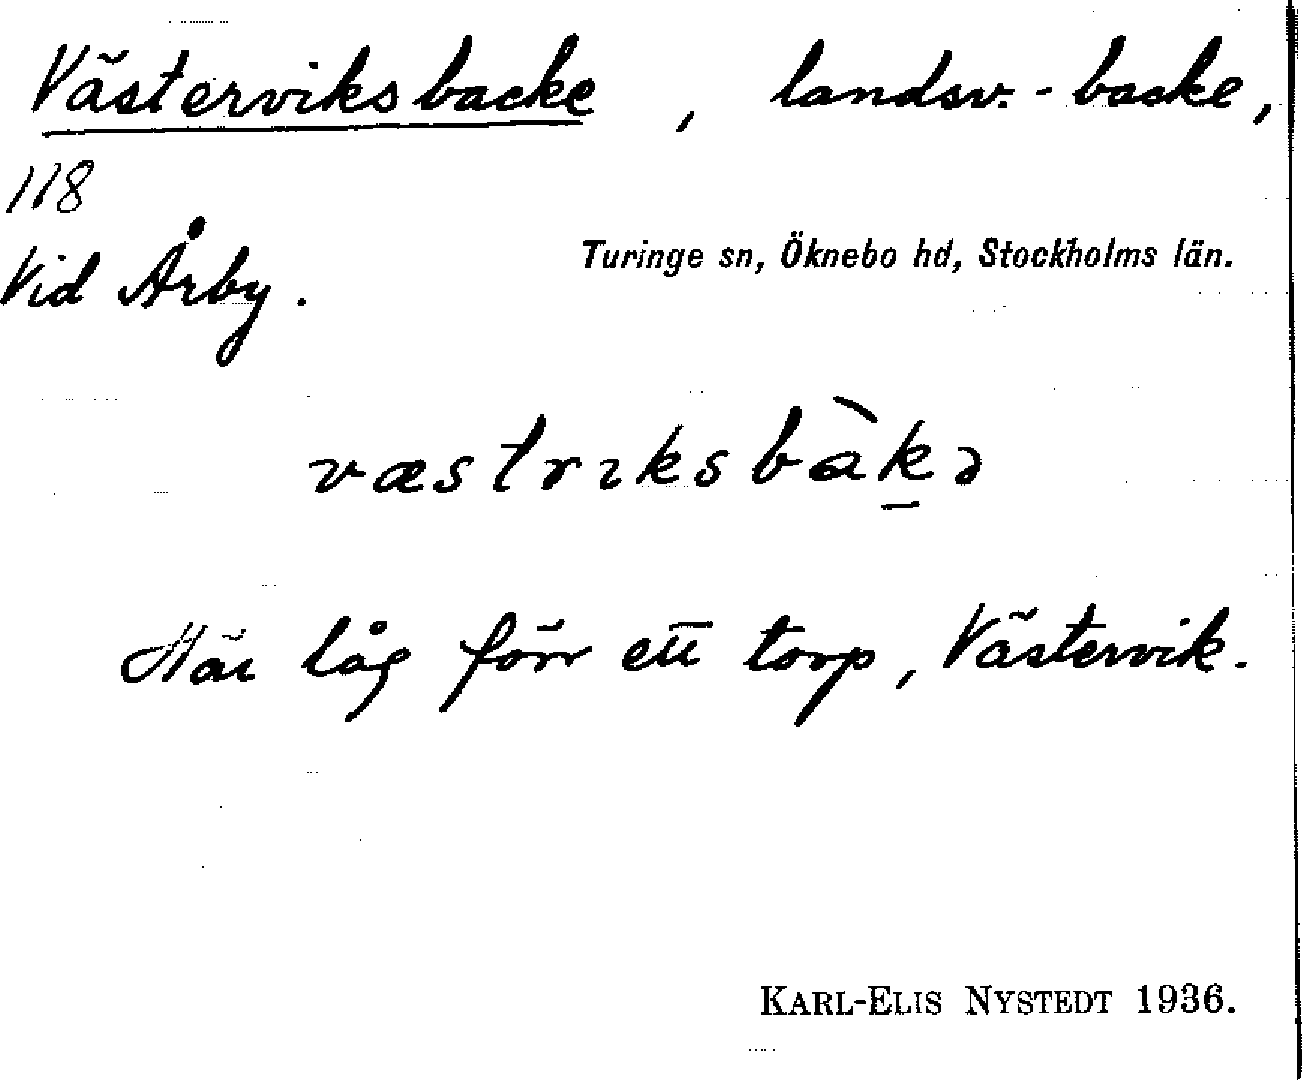 Västerviksbacke, landsv.-backe,
118
Vid Årby.
Turinge sn, Öknebo hd, Stockholms län.
væstrıksbàk̠ə
Här låg förr ett torp, Västervik.
KARL-ELIS NYSTEDT 1936.